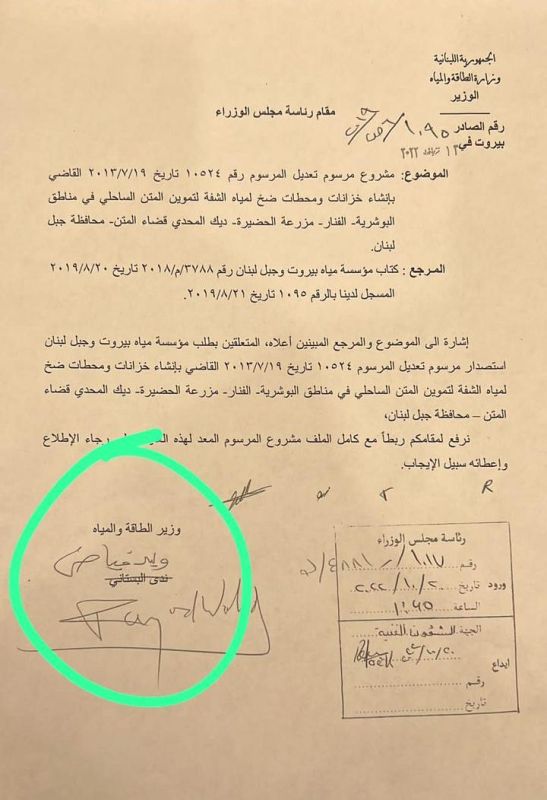 الجمهورية اللبنانية
وزارة الطاقة والمياه
الوزير
مقام رئاسة مجلس الوزراء
رقم الصادر ١٠٩٥
بيروت في ١٣ ٢٠٢٢
الموضوع: مشروع مرسوم تعديل المرسوم رقم ١٠٥٢٤ تاريخ ٢٠١٣/٧/١٩ القاضي
بإنشاء خزانات ومحطات ضخ لمياه الشفة لتموين المتن الساحلي في مناطق
البوشرية- الفنار- مزرعة الحضيرة- ديك المحدي قضاء المتن- محافظة جبل
لبنان.
المرجع : كتاب مؤسسة مياه بيروت وجبل لبنان رقم ٣٧٨٨/م/٢٠١٨ تاريخ ٢٠١٩/٨/٢٠
المسجل لدينا بالرقم ١٠٩٥ تاريخ ٢٠١٩/٨/٢١.
إشارة الى الموضوع والمرجع المبينين أعلاه، المتعلقين بطلب مؤسسة مياه بيروت وجبل لبنان
استصدار مرسوم تعديل المرسوم ١٠٥٢٤ تاريخ ٢٠١٣/٧/١٩ القاضي بإنشاء خزانات ومحطات ضخ
لمياه الشفة لتموين المتن الساحلي في مناطق البوشرية- الفنار- مزرعة الحضيرة- ديك المحدي قضاء
المتن – محافظة جبل لبنان،
نرفع لمقامكم ربطاً مع كامل الملف مشروع المرسوم المعد لهذه رجاء الإطلاع
وإعطائه سبيل الإيجاب.
R
وزير الطاقة والمياه
وليد فياض
ندى البستاني
Fayad Walid
رئاسة مجلس الوزراء
رقم
ورود تاريخ ٢٠٢٢/١٠/٢٠
الساعة
الجهة الشؤون الفنية
ايداع
رقم
تاريخ